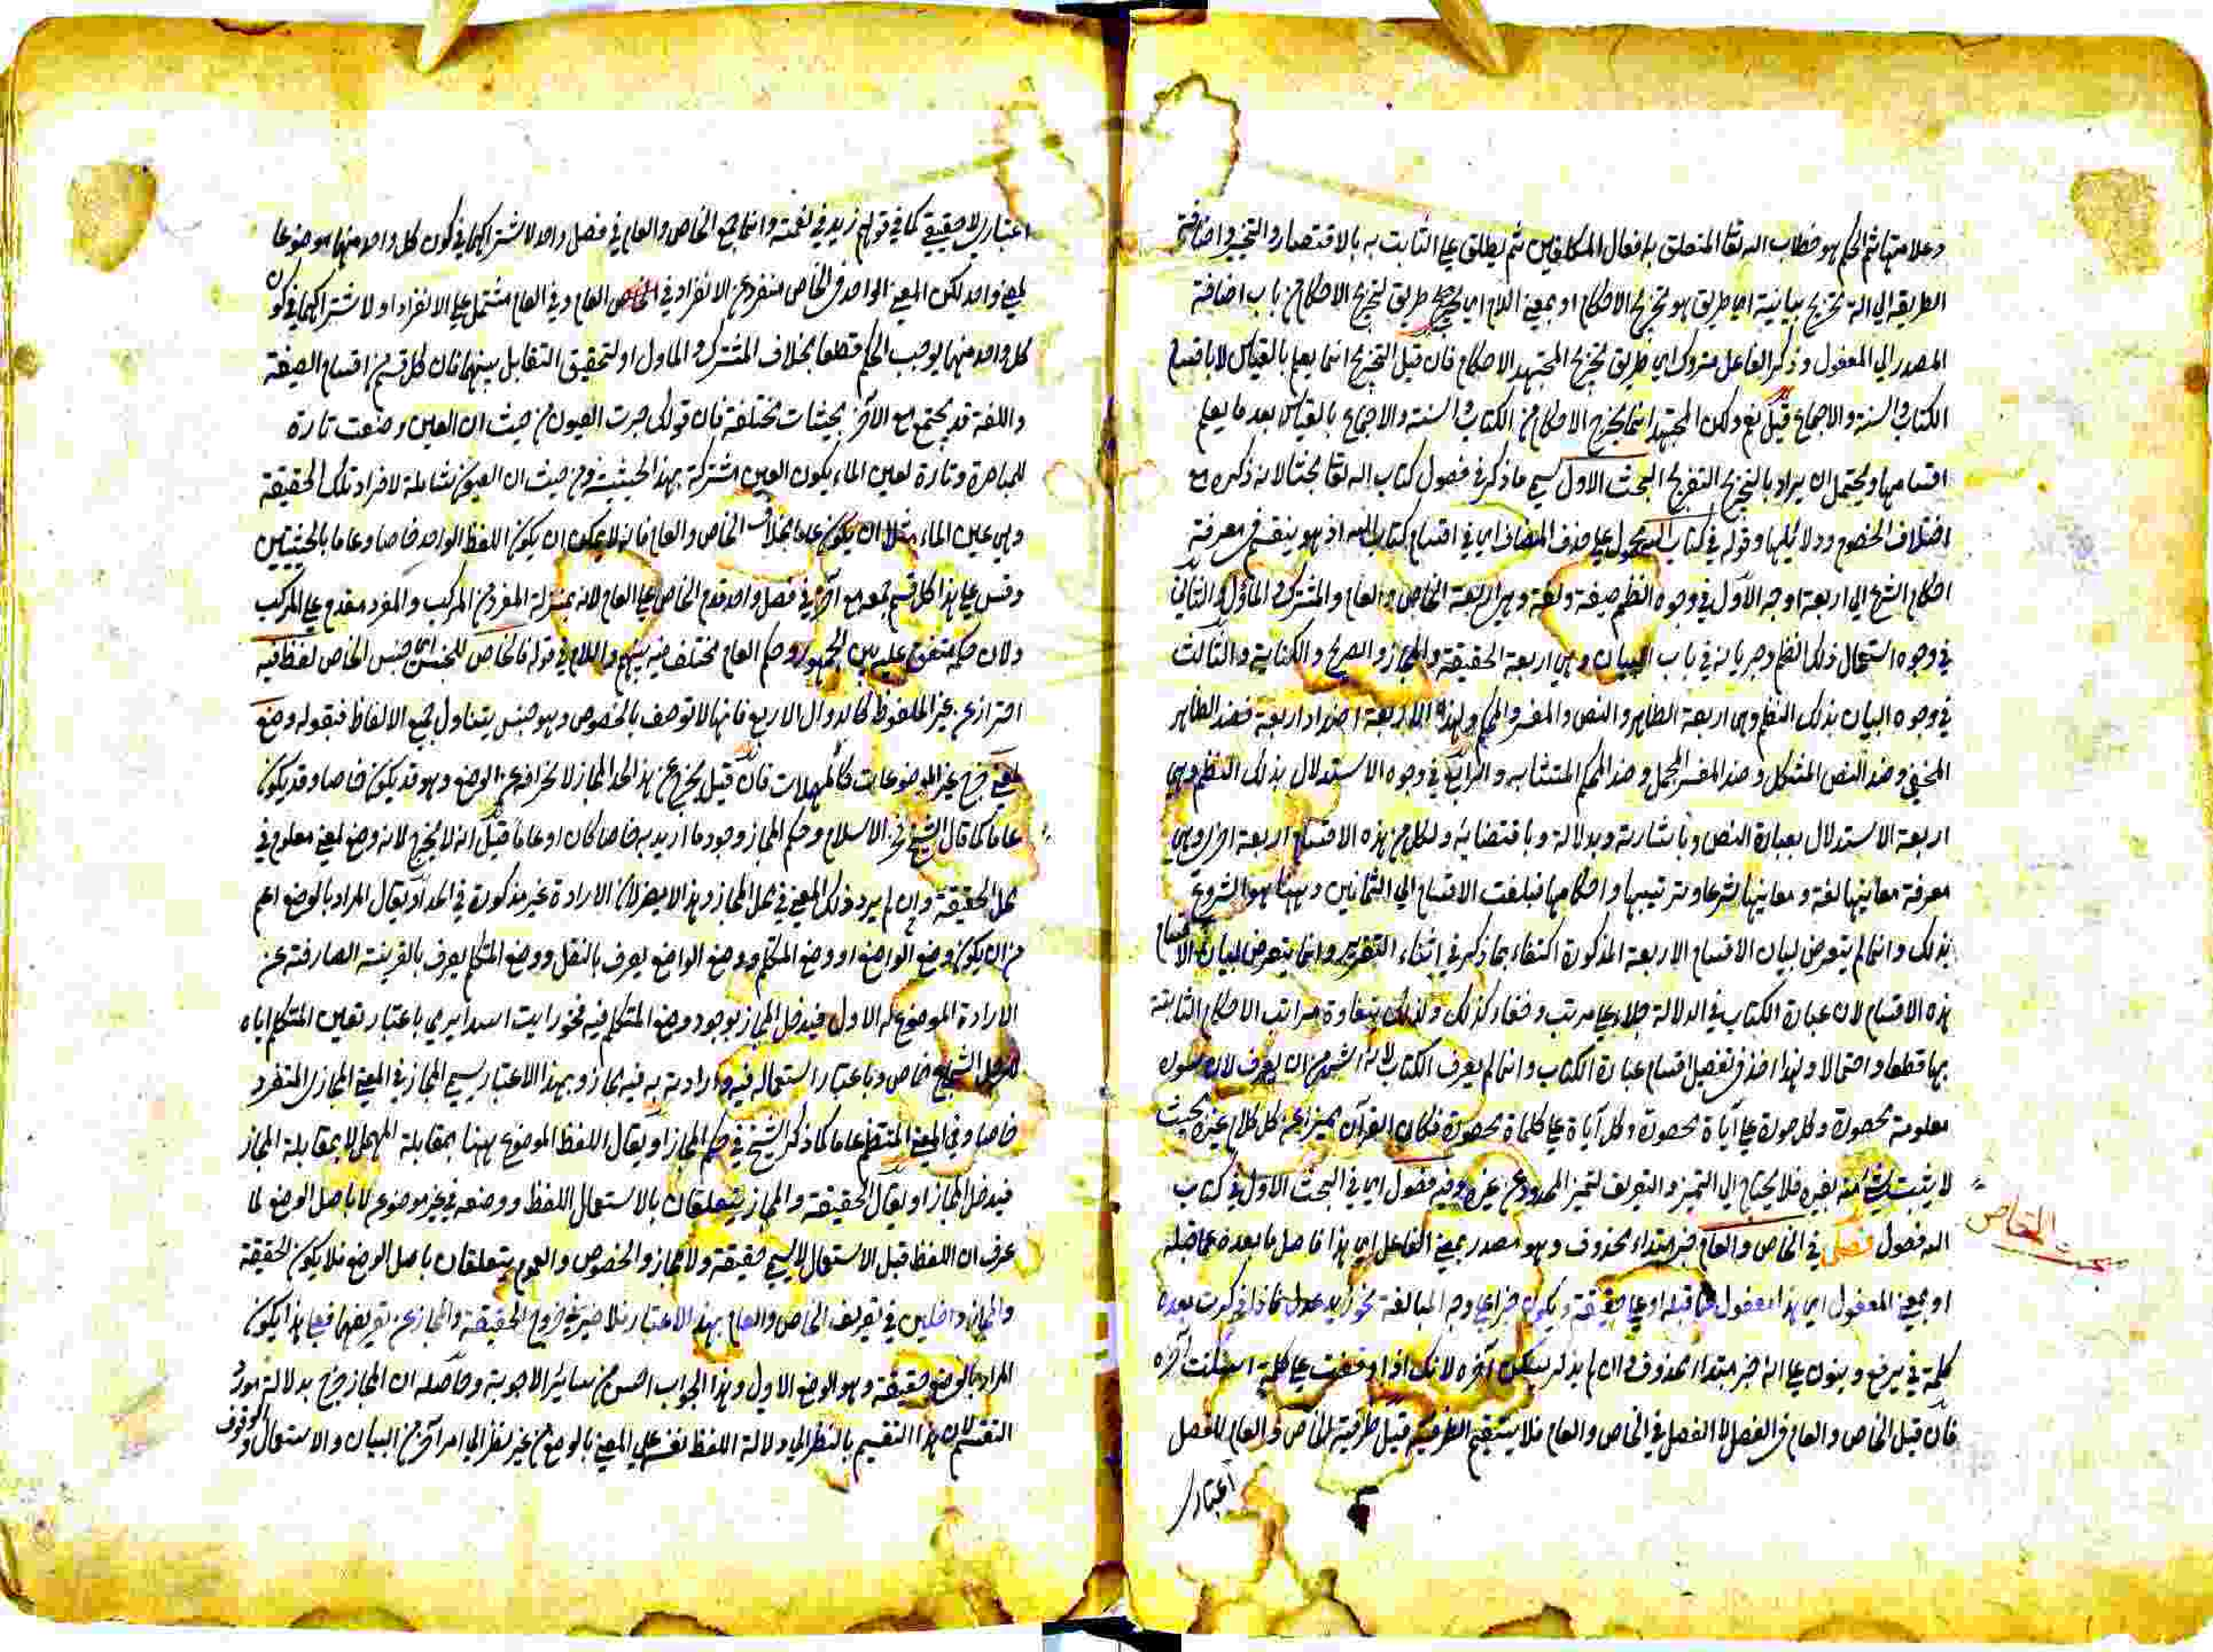 وعلامتها ثم الحكم هو خطاب الله تعا المتعلق بافعال المكلفين ثم يطلق علي الثابت به بالاقتضاء او التخيير واضافة
الطريقة الي التخريج بيانية اي طريق هو تخريج الاحكام او بمعني اللام اي طريق لتخريج الاحكام من باب اضافة
المصدر الي المفعول وذكر الفاعل متروك اي طريق تخريج المجتهد الاحكام فان قيل التخريج انما يعلم بالقياس لا باقسام
الكتاب والسنة والاجماع قيل نعم ولكن المجتهد انما يخرج الاحكام من الكتاب والسنة والاجماع بالقياس بعد ما يعلم
اقسامها ويحتمل ان يراد بالتخريج التفريج البحث الاول سمي ما ذكر في فصول كتاب الله تعا بحثا لانه ذكره مع
اختلاف الخصوم ودلائلها وقوله في كتاب الله محمول علي حذف المضاف اي في اقسام كتاب الله اذ هو ينقسم في معرفة
احكام الشرع الي اربعة اوجه الاول في وجوه النظم صيغة ولغة وهي اربعة الخاص والعام والمشترك والماول والثاني
في وجوه استعمال ذلك النظم وجريانه في باب البيان وهي اربعة الحقيقة والمجاز والصريح والكناية والثالث
في وجوه البيان بذلك النظم وهي اربعة الظاهر والنص والمفسر والمحكم ولهذه الاربعة اضداد اربعة فضد الظاهر
الخفي وضد النص المشكل وضد المفسر المجمل وضد المحكم المتشابه والرابع في وجوه الاستدلال بذلك النظم وهي
اربعة الاستدلال بعبارة النص وباشارته وبدلالته وباقتضائه ولكل من هذه الاقسام اربعة اخر وهي
معرفة معانيها لغة ومعانيها شرعا وترتيبها واحكامها فبلغت الاقسام الي الثمانين وههنا هو الشروع
بذلك وانما لم يتعرض لبيان الاقسام الاربعة المذكورة اكتفاء بما ذكر في اثناء التقرير وانما يتعرض لبيان الاقسام
هذه الاقسام لان عبارة الكتاب في الدلالة جلاء علي مرتب وخفاء كذلك ولذلك يتفاوة مراتب الاحكام الثابتة
بها قطعا واحتمالا ولهذا اخذ في تفصيل اقسام عبارة الكتاب وانما لم يعرف الكتاب لانه اشهر من ان يعرف لان سوره
معلومة محصورة وكل سورة علي آياة محصورة وكل آياة علي كلماة محصورة فكان القرآن مميزا عن كل كلام غيره بحيث
لا يشتبه شيء منه بغيره فلا يحتاج الي التمييز والتعريف لتمييز المحدود عن غيره وفيه فصول اي في البحث الاول في كتاب
الله فصول فصل في الخاص والعام خبر مبتداء محذوف وهو مصدر بمعني الفاعل اي هذا فاصل ما بعده عما قبله
او بمعني المفعول اي هذا مفصول عما قبله او علي حقيقة ويكون خبرا علي وجه المبالغة نحو زيد عدل فاذا ذكرت بعده
كلمة في يرفع وينون علي انه خبر مبتداء محذوف وان لم يذكر يسكن آخره لانك اذا وقفت علي كلمة اسكنت آخره
فان قيل الخاص والعام في الفصل لا الفصل في الخاص والعام فلا يستقيم الظرفية قيل ظرفية الخاص والعام للفصل
اعتباري
مبحث الخاص
اعتباري لا حقيقي كما في قولهم زيد في نعمة وانما جمع الخاص والعام في فصل واحد لاشتراكهما في كون كل واحد منهما موضوعا
لمعني واحد لكن المعني الواحد في الخاص منفرد عن الانفراد في العام وفي العام مشتمل علي الانفراد او لاشتراكهما في كون
كل واحد منهما يوجب الحكم قطعا بخلاف المشترك والماول او لتحقيق التقابل بينهما فان كل قسم من اقسام الصيغة
واللغة قد يجتمع مع الآخر بحيثيات مختلفة فان قولك جرت العيون من حيث ان العين وضعت تارة
للباصرة وتارة لعين الماء يكون العين مشتركة بهذا الحيثية ومن حيث ان العيون شاملة لافراد تلك الحقيقة
وهي عين الماء مثلا ان يكون عاما بخلاف الخاص والعام فانه لا يمكن ان يكون اللفظ الواحد خاصا وعاما بالحيثيتين
وقس علي هذا كل قسم جمعه مع آخره في فصل واحد قدم الخاص علي العام لانه بمنزلة المفرد من المركب والمفرد مقدم علي المركب
ولان حكمه متفق عليه بين الجمهور وحكم العام مختلف فيه بينهم واللام في قوله فالخاص للجنس اي جنس الخاص لفظ فيه
احتراز عن غير الملفوظ كالدوال الاربع فانها لا توصف بالخصوص وهو جنس يتناول جميع الالفاظ فبقوله وضع
لمعني خرج غير الموضوعات كالمهملات فان قيل يخرج عن هذا الحد المجاز لانحرافه عن الوضع وهو قد يكون خاصا وقد يكون
عاما كما قال الشيخ فخر الاسلام وحكم المجاز وجود ما اريد به خاصا كان او عاما قيل انه لا يخرج لانه وضع لمعني معلوم في
محل الحقيقة وان لم يرد ذلك المعني في محل المجاز وهذا لا يضر لان الارادة غير مذكورة في الحد او يقال المراد بالوضع اعم
من ان يكون وضع الواضع او وضع المتكلم ووضع الواضع يعرف بالنقل ووضع المتكلم يعرف بالقرينة الصارفة عن
الارادة الموضوع له الاول فيدخل المجاز بوجود وضع المتكلم فيه نحو رايت اسدا يرمي باعتبار تعين المتكلم اياه
للرجل الشجاع خاص وباعتبار استعماله فيه وارادته به فيه مجاز وبهذا الاعتبار يسمي المجاز في المعني المجازي المنفرد
خاصا وفي المعني المنتظم عاما كما ذكر الشيخ في حكم المجاز او يقال اللفظ الموضوع ههنا بمقابلة المهمل لا بمقابلة المجاز
فيدخل المجاز او يقال الحقيقة والمجاز يتعلقان بالاستعمال اللفظ ووضعه في غير موضوع لا باصل الوضع لما
عرف ان اللفظ قبل الاستعمال لا يسمي حقيقة ولا مجاز والخصوص والعموم يتعلقان باصل الوضع فلا يكون الحقيقة
والمجاز داخلين في تعريف الخاص والعام بهذ الاعتبار فلا ضير في خروج الحقيقة والمجاز عن تعريفهما فعلي هذا يكون
المراد بالوضع حقيقة وهو الوضع الاول وهذا الجواب احسن من سائر الاجوبة وحاصله ان المجاز خرج بدلالة مورد
التقسيم لان هذا التقسيم بالنظر الي دلالة اللفظ نفسه علي المعني بالوضع من غير نظر الي امر آخر من البيان والاستعمال والوقوف